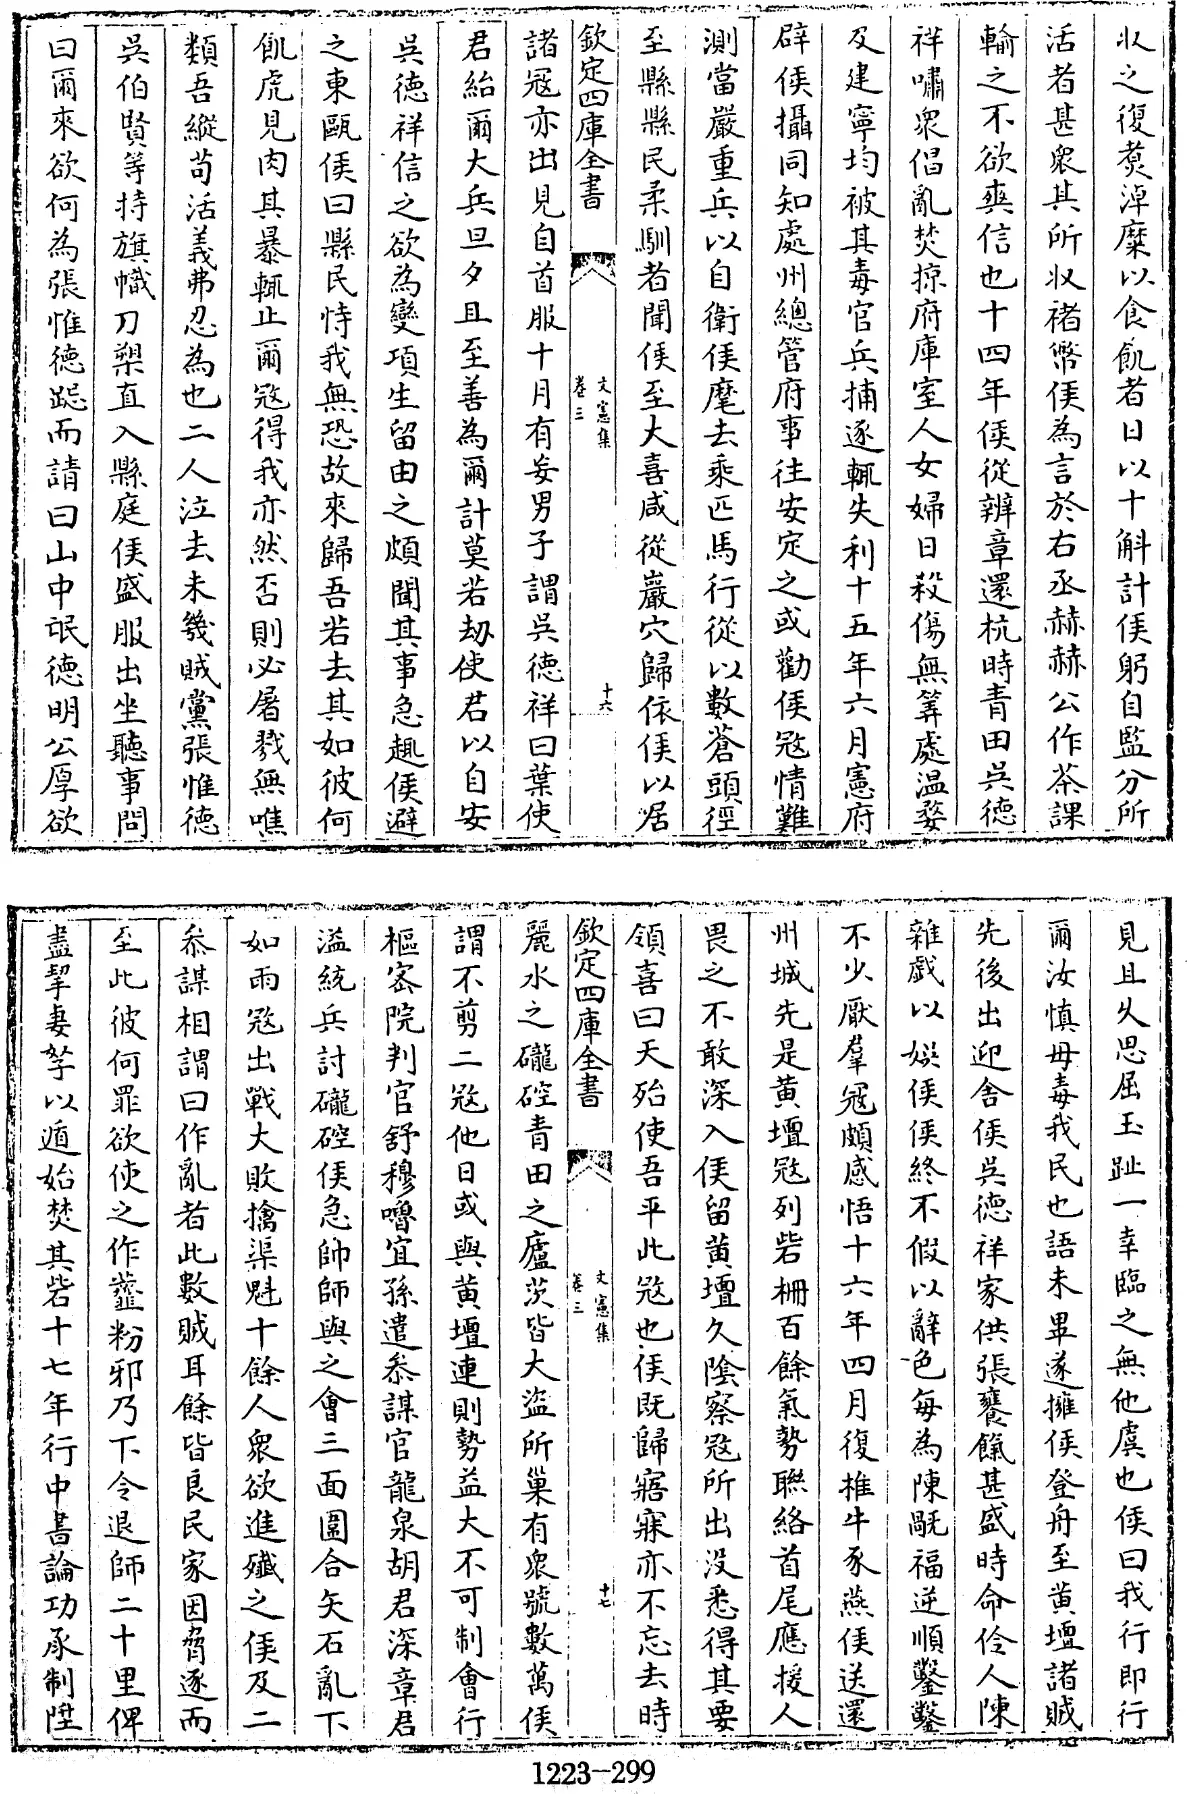 収之復煑淖糜以食飢者日以十斛計侯躬自監分所
活者甚衆其所収褚幣侯為言於右丞赫赫公作茶課
輸之不欲爽信也十四年侯從辨章還杭時青田吳德
祥嘯衆倡亂焚掠府庫室人女婦日殺傷無筭處温婺
及建寧均被其毒官兵捕逐輒失利十五年六月憲府
辟侯攝同知處州總管府事往安定之或勸侯冦情難
測當嚴重兵以自衛侯麾去乘匹馬行從以數蒼頭徑
至縣縣民柔馴者聞侯至大喜咸從巖穴歸依侯以居
欽定四庫全書
文憲集
卷三
十六
諸冦亦出見自首服十月有妄男子謂吳德祥曰葉使
君紿爾大兵旦夕且至善為爾計莫若劫使君以自安
吳德祥信之欲為變項生留由之頗聞其事急趣侯避
之東甌侯曰縣民恃我無恐故來歸吾若去其如彼何
飢虎見肉其暴輒止爾冦得我亦然否則必屠戮無噍
類吾縱苟活義弗忍為也二人泣去未幾賊黨張惟德
吳伯賢等持旗幟刀槊直入縣庭侯盛服出坐聽事問
曰爾來欲何為張惟德跽而請曰山中氓德明公厚欲
見且乆思屈玉趾一幸臨之無他虞也侯曰我行即行
爾汝慎毋毒我民也語未畢遂擁侯登舟至黄壇諸賊
先後出迎舍侯吳德祥家供張饔餼甚盛時命伶人陳
雜戲以娛侯侯終不假以辭色每為陳禍福逆順鑿鑿
不少厭羣冦頗感悟十六年四月復椎牛豕燕侯送還
州城先是黄壇冦列砦柵百餘氣勢聯絡首尾應援人
畏之不敢深入侯留黄壇久隂察冦所出没悉得其要
領喜曰天殆使吾平此冦也侯既歸寤寐亦不忘去時
欽定四庫全書
文憲集
卷三
十七
麗水之礲硿青田之廬茨皆大盜所巢有衆號數萬侯
謂不剪二冦他日或與黄壇連則勢益大不可制會行
樞宻院判官舒穆嚕宜孫遣叅謀官龍泉胡君深章君
溢統兵討礲硿侯急帥師與之會三面圍合矢石亂下
如雨冦出戰大敗擒渠魁十餘人衆欲進殱之侯及二
叅謀相謂曰作亂者此數賊耳餘皆良民家因脅逐而
至此彼何罪欲使之作虀粉邪乃下令退師二十里俾
盡挈妻孥以遁始焚其砦十七年行中書論功承制陞
1223-299